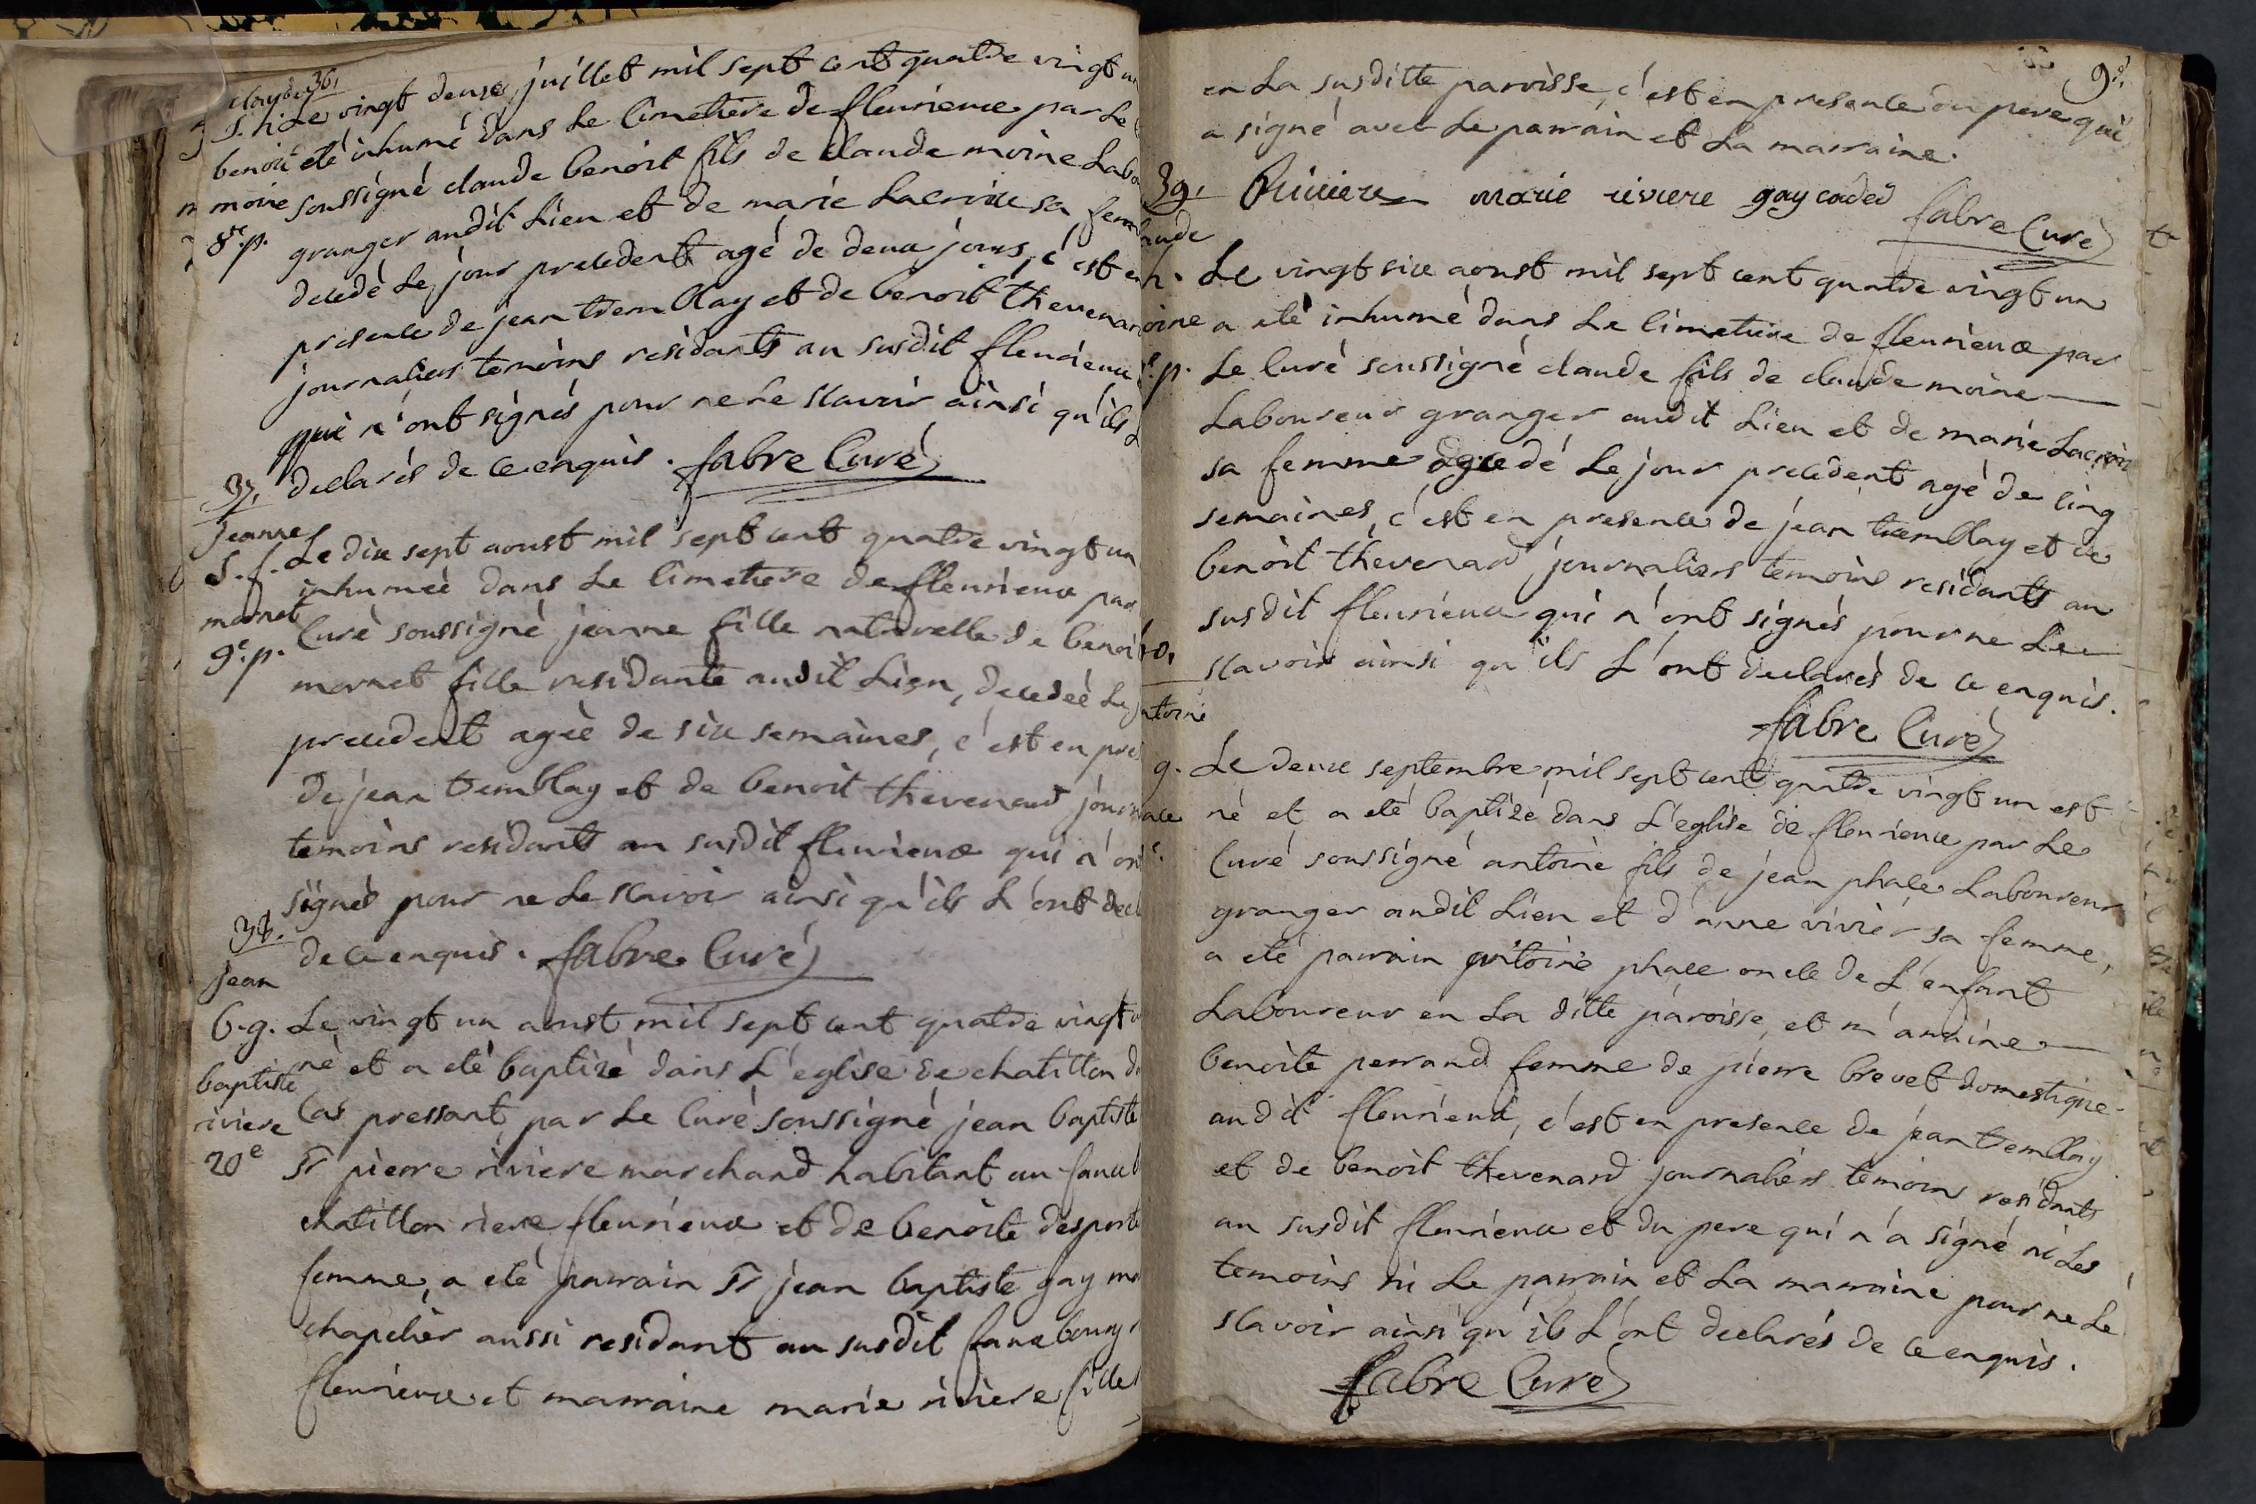 36,
claude
S. h. Le vingt deux juillet mil sept cent quatre vingt u
benoit eté inhumé dans Le Cimetiere de fleurieux par Le
moine soussigné claude benoit fils de claude moine Labo
8e. p. granger audit Lieu et de marie Lacroix sa fem
decedé Le jour precedent agé de deux jours, c'est en
presence de jean tremblay et de benoit thevenar
journaliers temoins residants au susdit fleurieux
qui n'ont signés pour ne le sçavoir ainsi qu'ils L
declarés de ce enquis. fabre Curé
37,
jeanne
S. f. Le dix sept aoust mil sept cent quatre vingt un
inhumeé dans Le Cimetiere de fleurieux par
mornet
Curé soussigné jeanne fille naturelle de benoi
9e. p.
mornet fille residante audit Lieu, decedeé Le j
precedent ageé de six semaines, c'est en pres
de jean tremblay et de benoit thevenard journ
temoins residants au susdit fleurieux qui n'on
signés pour ne Le sçavoir ainsi qu'ils L'ont decl
38.
de ce enquis. fabre Curé
jean
b. g. Le vingt un aoust mil sept cent quatre vingt u
né et a eté baptizé dans L'eglise de chatillon d
baptiste
Cas pressant par Le Curé soussigné jean baptiste
riviere
20e Sr pierre riviere marchand habitant au faux b
chatillon riere fleurieux et de benoite desporte
femme, a eté parrain Sr jean baptiste gay ma
chapelier aussi residant au susdit faux bourg
fleurieux et marraine marie riviere fille
9e.
en La susditte paroisse, c'est en presence du pere qui
a signé avec Le parrain et La marraine.
39, Riviere marie riviere gay cadet
fabre Curé
aude
h. Le vingt six aoust mil sept cent quatre vingt un
oine a eté inhumé dans Le Cimetiere de fleurieux par
e. p. Le Curé soussigné claude fils de claude moine
Laboureur granger audit Lieu et de marie Lacroix
sa femme decedé Le jour precedent agé de Cinq
semaines, c'est en presence de jean tremblay et de
benoit thevenard journaliers temoins residants au
susdit fleurieux qui n'ont signés pour ne Le
0,
sçavoir ainsi qu'ils L'ont declarés de ce enquis.
ntoine
fabre Curé
g. Le deux septembre mil sept cent quatre vingt un est
ace né et a eté baptizé dans L'eglise de fleurieux par Le
e.
Curé soussigné antoine fils de jean phale Laboureur
granger audit Lieu et d'anne vivier sa femme,
a eté parrain antoine phale oncle de L'enfant
Laboureur en La ditte paroisse, et marraine
benoite perrand femme de pierre brevet domestique
audit fleurieux, c'est en presence de jean tremblay
et de benoit thevenard journaliers temoins residants
au susdit fleurieux et du pere qui n'a signé ni Les
temoins ni Le parrain et La marraine pour ne Le
sçavoir ainsi qu'ils L'ont declarés de ce enquis.
fabre Curé